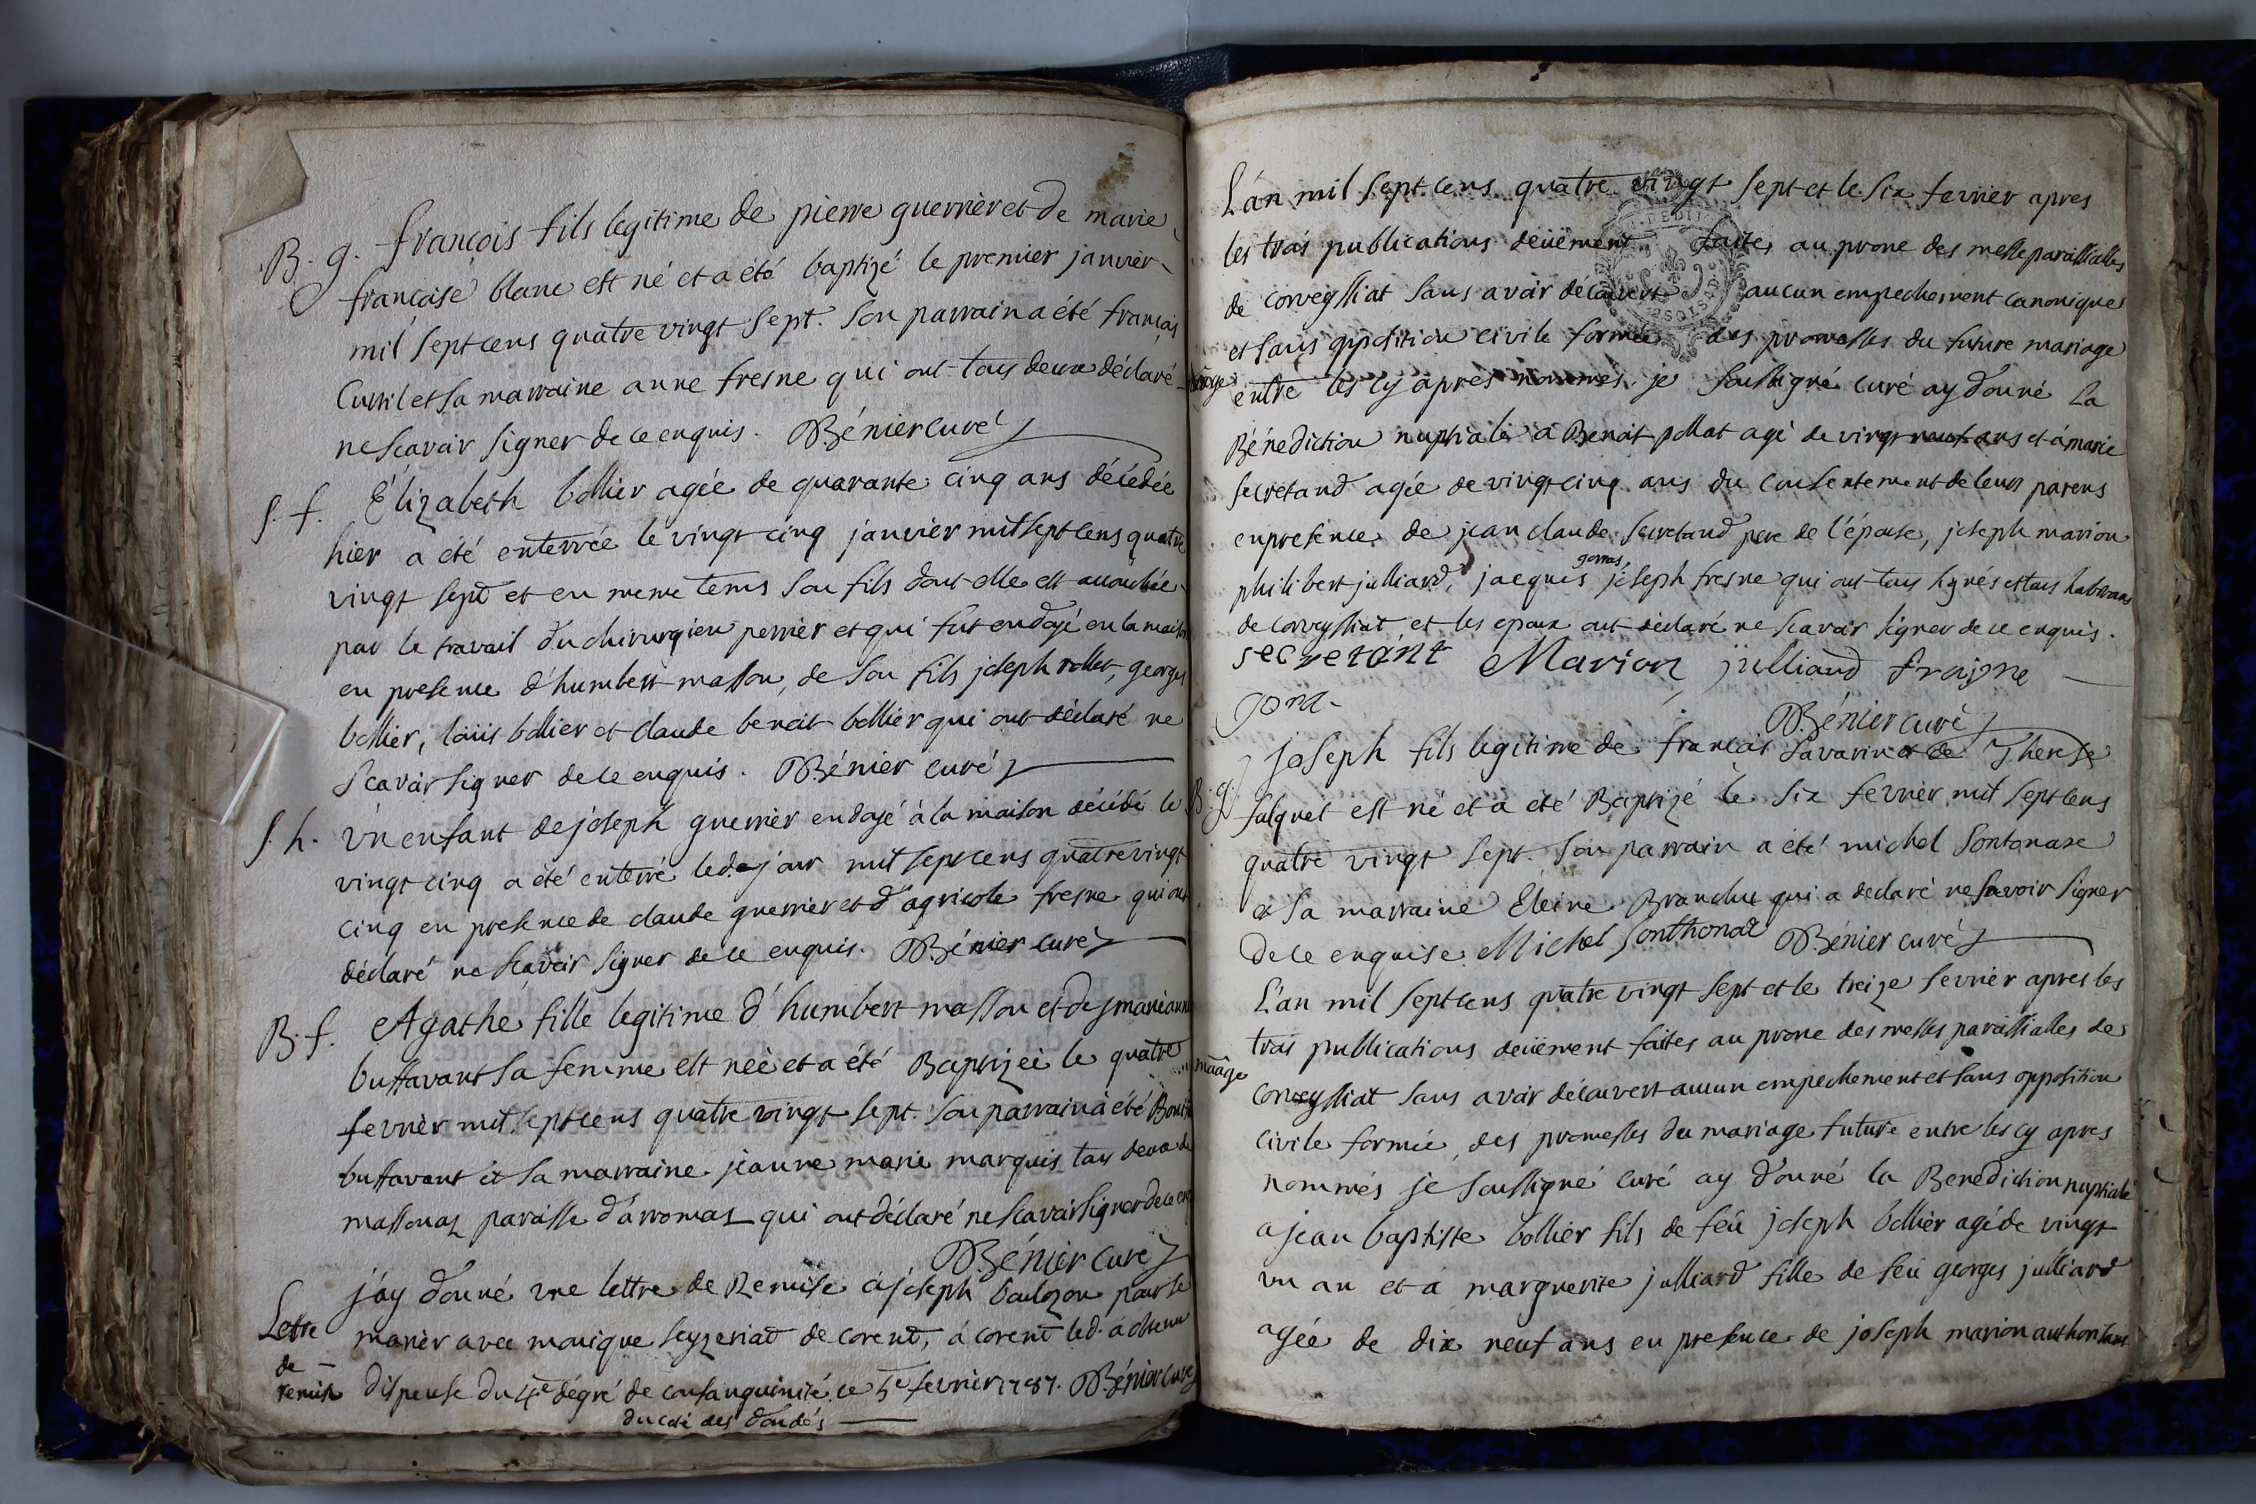 B. g. françois fils legitime de pierre guerrier et de marie
françoise blanc est né et a été baptizé le premier janvier
mil sept cens quatre vingt sept. son parrain a été françois
Curvil et sa marraine anne fresne qui ont tous deux déclaré
ne scavoir signer de ce enquis. Bénier curé
s. f. Élizabeth bollier agée de quarante cinq ans décédée
hier a été enterrée le vingt cinq janvier mil sept cens quatre
vingt sept et en meme tems son fils dont elle est accouchée
par le travail du chirurgien perrier et qui fut endoyé en la maison
en presence d'humbert masson, de son fils joseph rollet, georges
bollier, loüis bollier et claude benoit bollier qui ont déclaré ne
scavoir signer de ce enquis. Bénier curé
s. h. Un enfant de joseph guerrier endoyé à la maison décédé le
vingt cinq a été enterré led. jour mil sept cens quatre vingt
cinq en presence de claude guerrier et d'agricole fresne qui ont
déclaré ne scavoir signer de ce enquis. Bénier curé
B. f. Agathe fille legitime d'humbert masson et de marie anne
buffavant sa femme est née et a été Baptizée le quatre
fevrier mil sept cens quatre vingt sept. son parrain a été
buffavant et sa marraine jeanne marie marquis tous deux de
massonas paroisse d'arromas qui ont déclaré ne scavoir signer de ce enq
Bénier curé
j'ay donné une lettre de Remise à joseph boulozon pour se
Lettre marier avec monique seyzeriat de corent, à corent led. a obtenu
de
remise dispense du 4e dégré de consanguinité. ce 5e fevrier 1787. Bénier curé
du coté des dondés
L'an mil sept cens quatre vingt sept et le six fevrier apres
les trois publications deüement faites au prone des messe paroissialles
de corveyssiat sans avoir découvert aucun empechement canoniques
et sans opposition civile formée des promesses du future mariage
mãage entre les cy apres nommés je soussigné curé ay donné la
Bénediction nuptiale à Benoit pollat agé de vingt neuf ans et à marie
secretand agée de vingt cinq ans du consentement de leurs parens
en presence de jean claude secretand pere de l'épouse, joseph marion
philibert julliard, jacques gonas, joseph fresne qui ont tous signés et tous habitans
de corveyssiat et les epoux ont déclaré ne scavoir signer de ce enquis.
secretant Marion julliand fraigne
gona
Bénier curé
joseph fils legitime de françois savarin et de Therese
B. g. falquet est né et a été Baptizé le six fevrier mil sept cens
quatre vingt sept. son parrain a été michel sontonaxe
et sa marraine Eleine Branchu qui a declaré ne savoir signer
de ce enquise Michel sonthonax Bénier curé
L'an mil sept cens quatre vingt sept et le treize fevrier apres les
trois publications deüement faites au prone des messes paroissialles de
mãage corveyssiat sans avoir découvert aucun empechement et sans opposition
civile formée, des promesses du mariage future entre les cy apres
nommés je soussigné curé ay donné la Benediction nuptiale
a jean baptiste bollier fils de feü joseph bollier agé de vingt
un an et a marguerite julliard fille de feü georges julliard
agée de dix neuf ans en presence de joseph marion